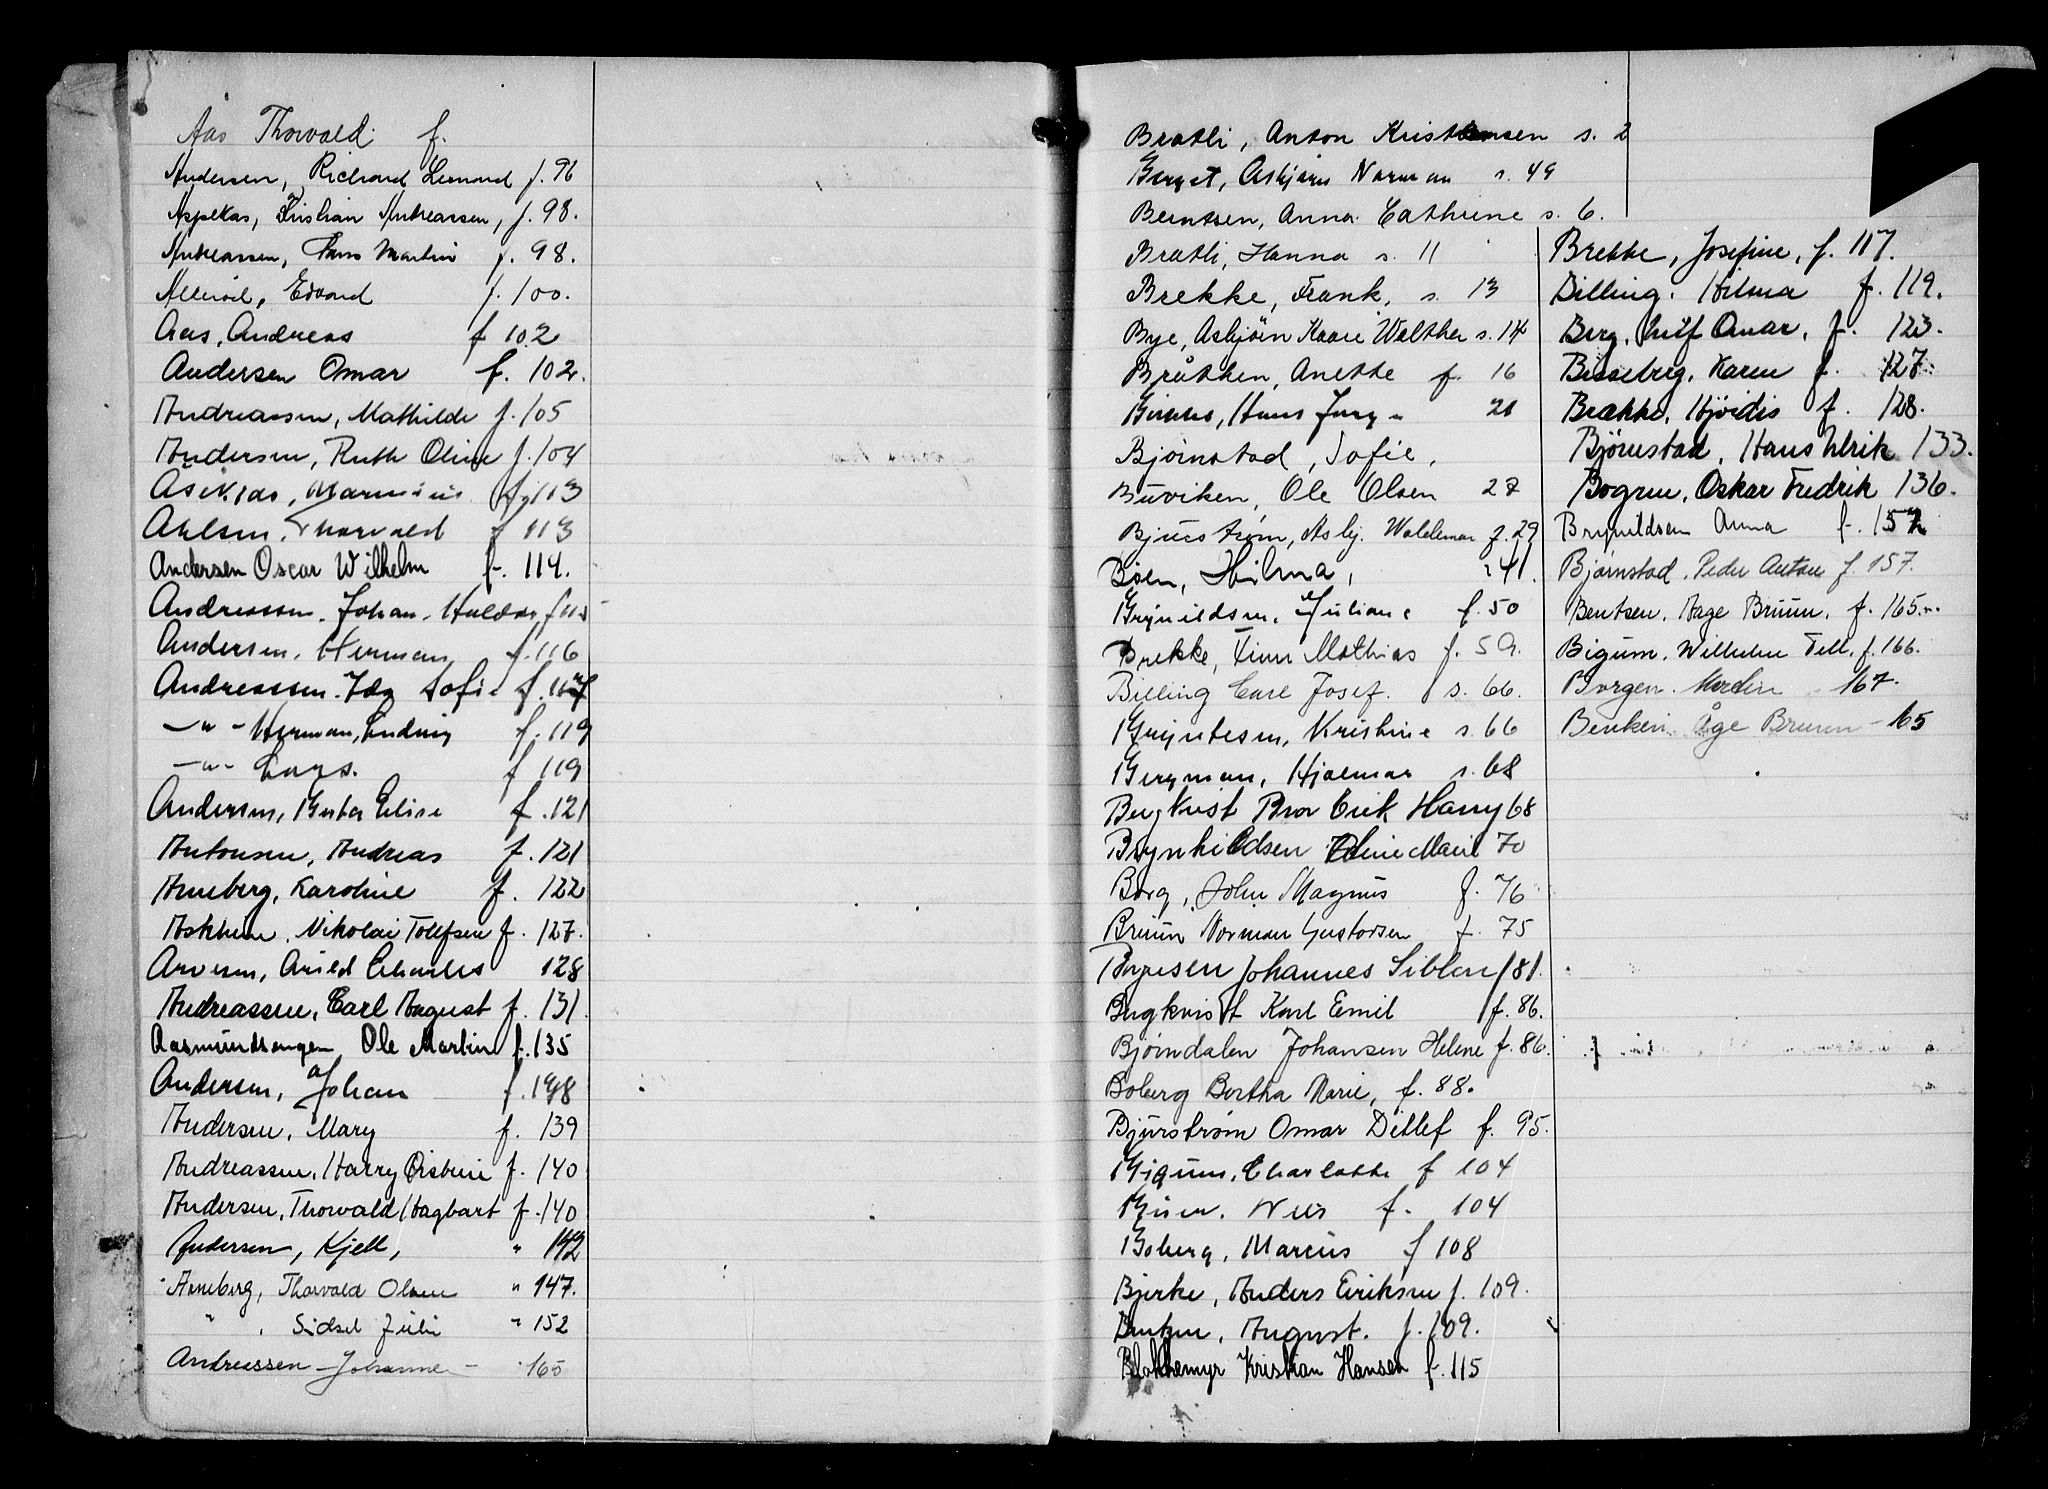 Aas Thorvald f.
Andersen, Richard Leonard f. 96
Aspekås, Kristian Andreassen, f. 98.
Andreassen, Hans Martin f. 98.
Allerød, Edvard f. 100.
Aas, Andreas f 102
Andersen Omar f. 102.
Andreassen, Mathilde f. 105
Andersen, Ruth Oline f. 104
Marinius f 113
Ahlsen, Thorvald f 113
Andersen Oscar Wilhelm f. 114.
Andreassen, Johan Haldor f 115
Andersen, Herman f. 116
Andreassen. Ida Sofie f. 117
-"- Herman, Ludvig f. 119
-"- Lars. f 119
Andersen, Berta Elise f. 121
Antonsen, Andreas f. 121
Arneberg, Karoline f. 122
Askheim, Nikolai Tollefsen f. 127.
Arvesen, Arild Charles 128
Andreassen, Carl August f. 131.
Aasmundsengen Ole Martin f. 135
Andersen, Johan f. 198
Andersen, Mary f. 139
Andreassen, Harry f. 140
Andersen, Thorvald Hagbart f. 140
Andersen, Kjell, " 142
Arneberg, Thorvald Olsen " 147.
" , Sidsel Julie " 152
Andreassen - Johanne - 165
Bratli, Anton Kristiansen s. 2
Berget, Asbjørn Norman s. 49
Berntsen, Anna Cathrine s. 6.
Bratli, Hanna s. 11
Brekke, Frank, s. 13
Bye, Asbjörn Kaare Walther s. 14
Bråtten, Anette f. 16
Hans Jørg - 21
Bjørnstad, Sofie,
Buviken, Ole Olsen 27
Bjurstrøm, Asbj. Waldemar f. 29
Bøen, Hilma, " 41.
Brynildsen, Juliane f. 50
Brekke, Finn Mathias f. 59.
Billing Carl Josef. s. 66.
Kristine s. 66
Bergman, Hjalmar s. 68
Bergkvist Bror Erik Harry 68
Brynhildsen Oline Marie 70
Borg, John Magnus f. 76
Bruun Norman Gustavsen f. 75
Johannes f 81.
Bergkvist Karl Emil f. 86.
Bjørndalen Johansen Helene f. 86.
Boberg Bertha Marie, f. 88.
Bjurstrøm Omar Ditlef f. 95.
Bigum, Charlotte f 104
f. 104
Boberg, Marcus f 108
Bjerke, Anders Eriksen f. 109.
Bentzen, August. f. 109.
Blokkemyr Kristian Hansen f. 115
Brekke, Josefine, f. 117.
Billing. Hilma f. 119.
Berg, Leif Omar, f. 123.
Bisseberg, Karen f. 127.
Brække, Hjördis f. 128.
Bjørnstad, Hans Ulrik 133.
Bogren, Oskar Fredrik 136.
Brynildsen Anna f. 157
Bjørnstad, Peder Anton f. 157.
Bentsen, Aage Bruun, f. 165.
Bigum, Wilhelm Tell, f. 166.
Borgen. Martin - 167.
Åge Bruun - 165